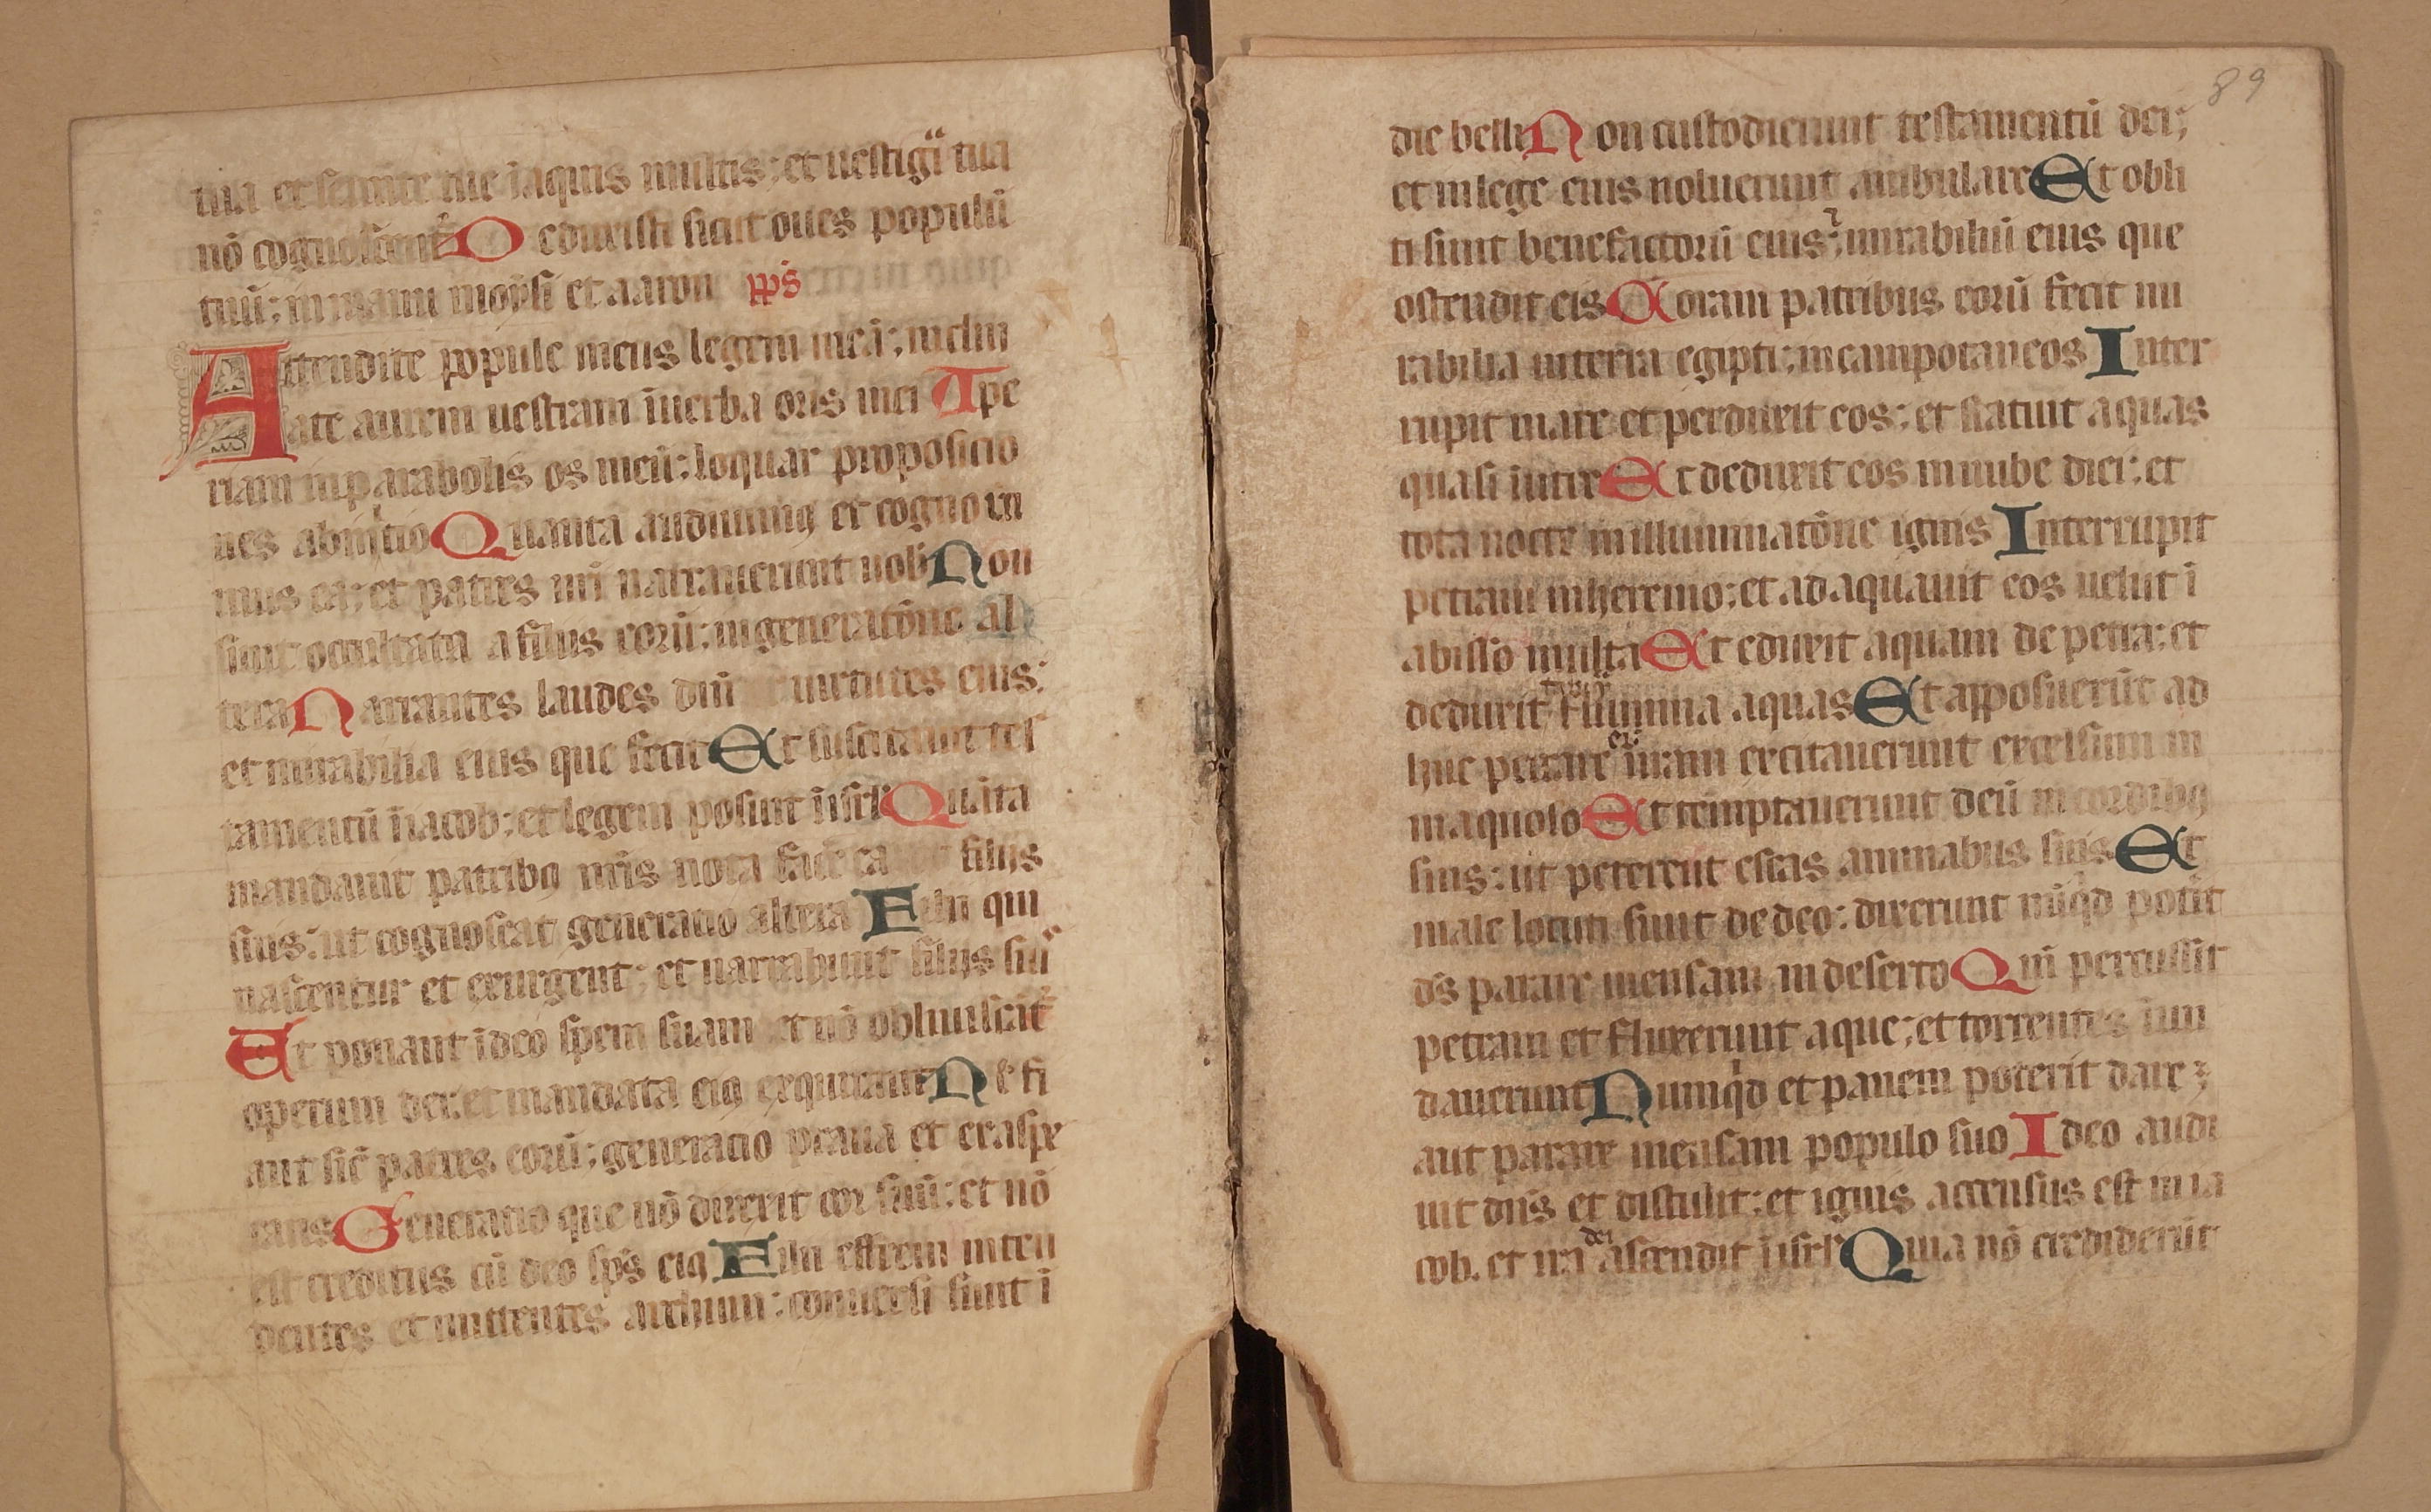 tua et semite tue ī aquis multis: et uestigĩ tua
nō cognoscent᷑ Deduxisti sicut oues populū
tuū: in manu moẏsi et aaron pp̄s
Attendite popule meus legem meā: inclin
ate aurem uestram ī uerba oris mei Ape
riam in parabolis os meū: loquar proposicio
nes ab initio Quanta audiuimꝰ et cognoui
mus ea: et patres nr̄i narrauerunt nob̄ Non
sunt occultata a filiis eorū: in generatōne al
tera Narrantes laudes dn̄i uirtutes eius:
et mirabilia eius que fecit Et suscitauit tes
tamentū ī iacob: et legem posuit ī isrl̄ Quāta
mandauit patribꝰ nr̄is nota facē ea filijs
suis: ut cognoscat generatio altera Filii qui
nascentur et exurgent: et narrabunt filijs sui᷒
Et ponant ī deo spem suam et nō obliuiscāt᷑
operum dei: et mandata eiꝰ exquirant Ne fi
ant sic̄ patres eorū: generatio praua et exaspe
rans Generatio que nō direxit cor suū: et nō
est creditus cū deo sp̄s eiꝰ Filii effrem inten
dentes et mittentes archum: conuersi sunt ī
89
die belli Non custodierunt testamentū dei;
et in lege eius noluerunt ambulare Et obli
ti sunt benefactorū eius: ⁊ mirabiliū eius que
ostendit eis Coram patribus eorū fecit mi
rabilia in terra egipti: in campo taneos Inter
rupit mare et perduxit eos: et statuit aquas
quasi in utre Et deduxit eos in nube diei: et
tota nocte in illuminatōne ignis Interrupit
petram in heremo: et adaquauit eos uelut ī
abisso multa Et eduxit aquam de petra: et
deduxit tanq̄ flumina aquas Et apposuerūt ad
huc peccare ei: in iram excitauerunt excelsum in
inaquoso Et temptauerunt deū in cordibꝰ
suis: ut peterent escas animabus suis Et
male locuti sunt de deo: dixerunt nūqͥd potīt
ds̄ parare mensam in deserto Qm̄ percussit
petram et fluxerunt aque: et torrentes inun
dauerunt Numqͥd et panem poterit dare:
aut parare mensam populo suo Ideo audi
uit dn̄s et distulit: et ignis accensus est in ia
cob. et ira dei ascendit ī isrl̄ Quia nō crediderūt